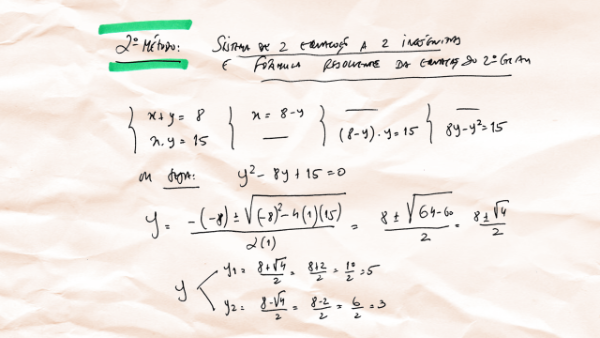 2º MÉTODO: SISTEMA DE 2 EQUAÇÕES A 2 INCÓGNITAS
E FÓRMULA RESOLVENTE DA EQUAÇÃO DO 2º GRAU
{ x + y = 8 { x = 8 - y { — { —
x . y = 15 — (8-y) . y = 15 8y - y² = 15
OU SEJA: y² - 8y + 15 = 0
y = (-(-8) ± √((-8)² - 4(1)(15))) / 2(1) = (8 ± √(64-60)) / 2 = (8 ± √4) / 2
y < y₁ = (8+√4)/2 = (8+2)/2 = 10/2 = 5
y₂ = (8-√4)/2 = (8-2)/2 = 6/2 = 3